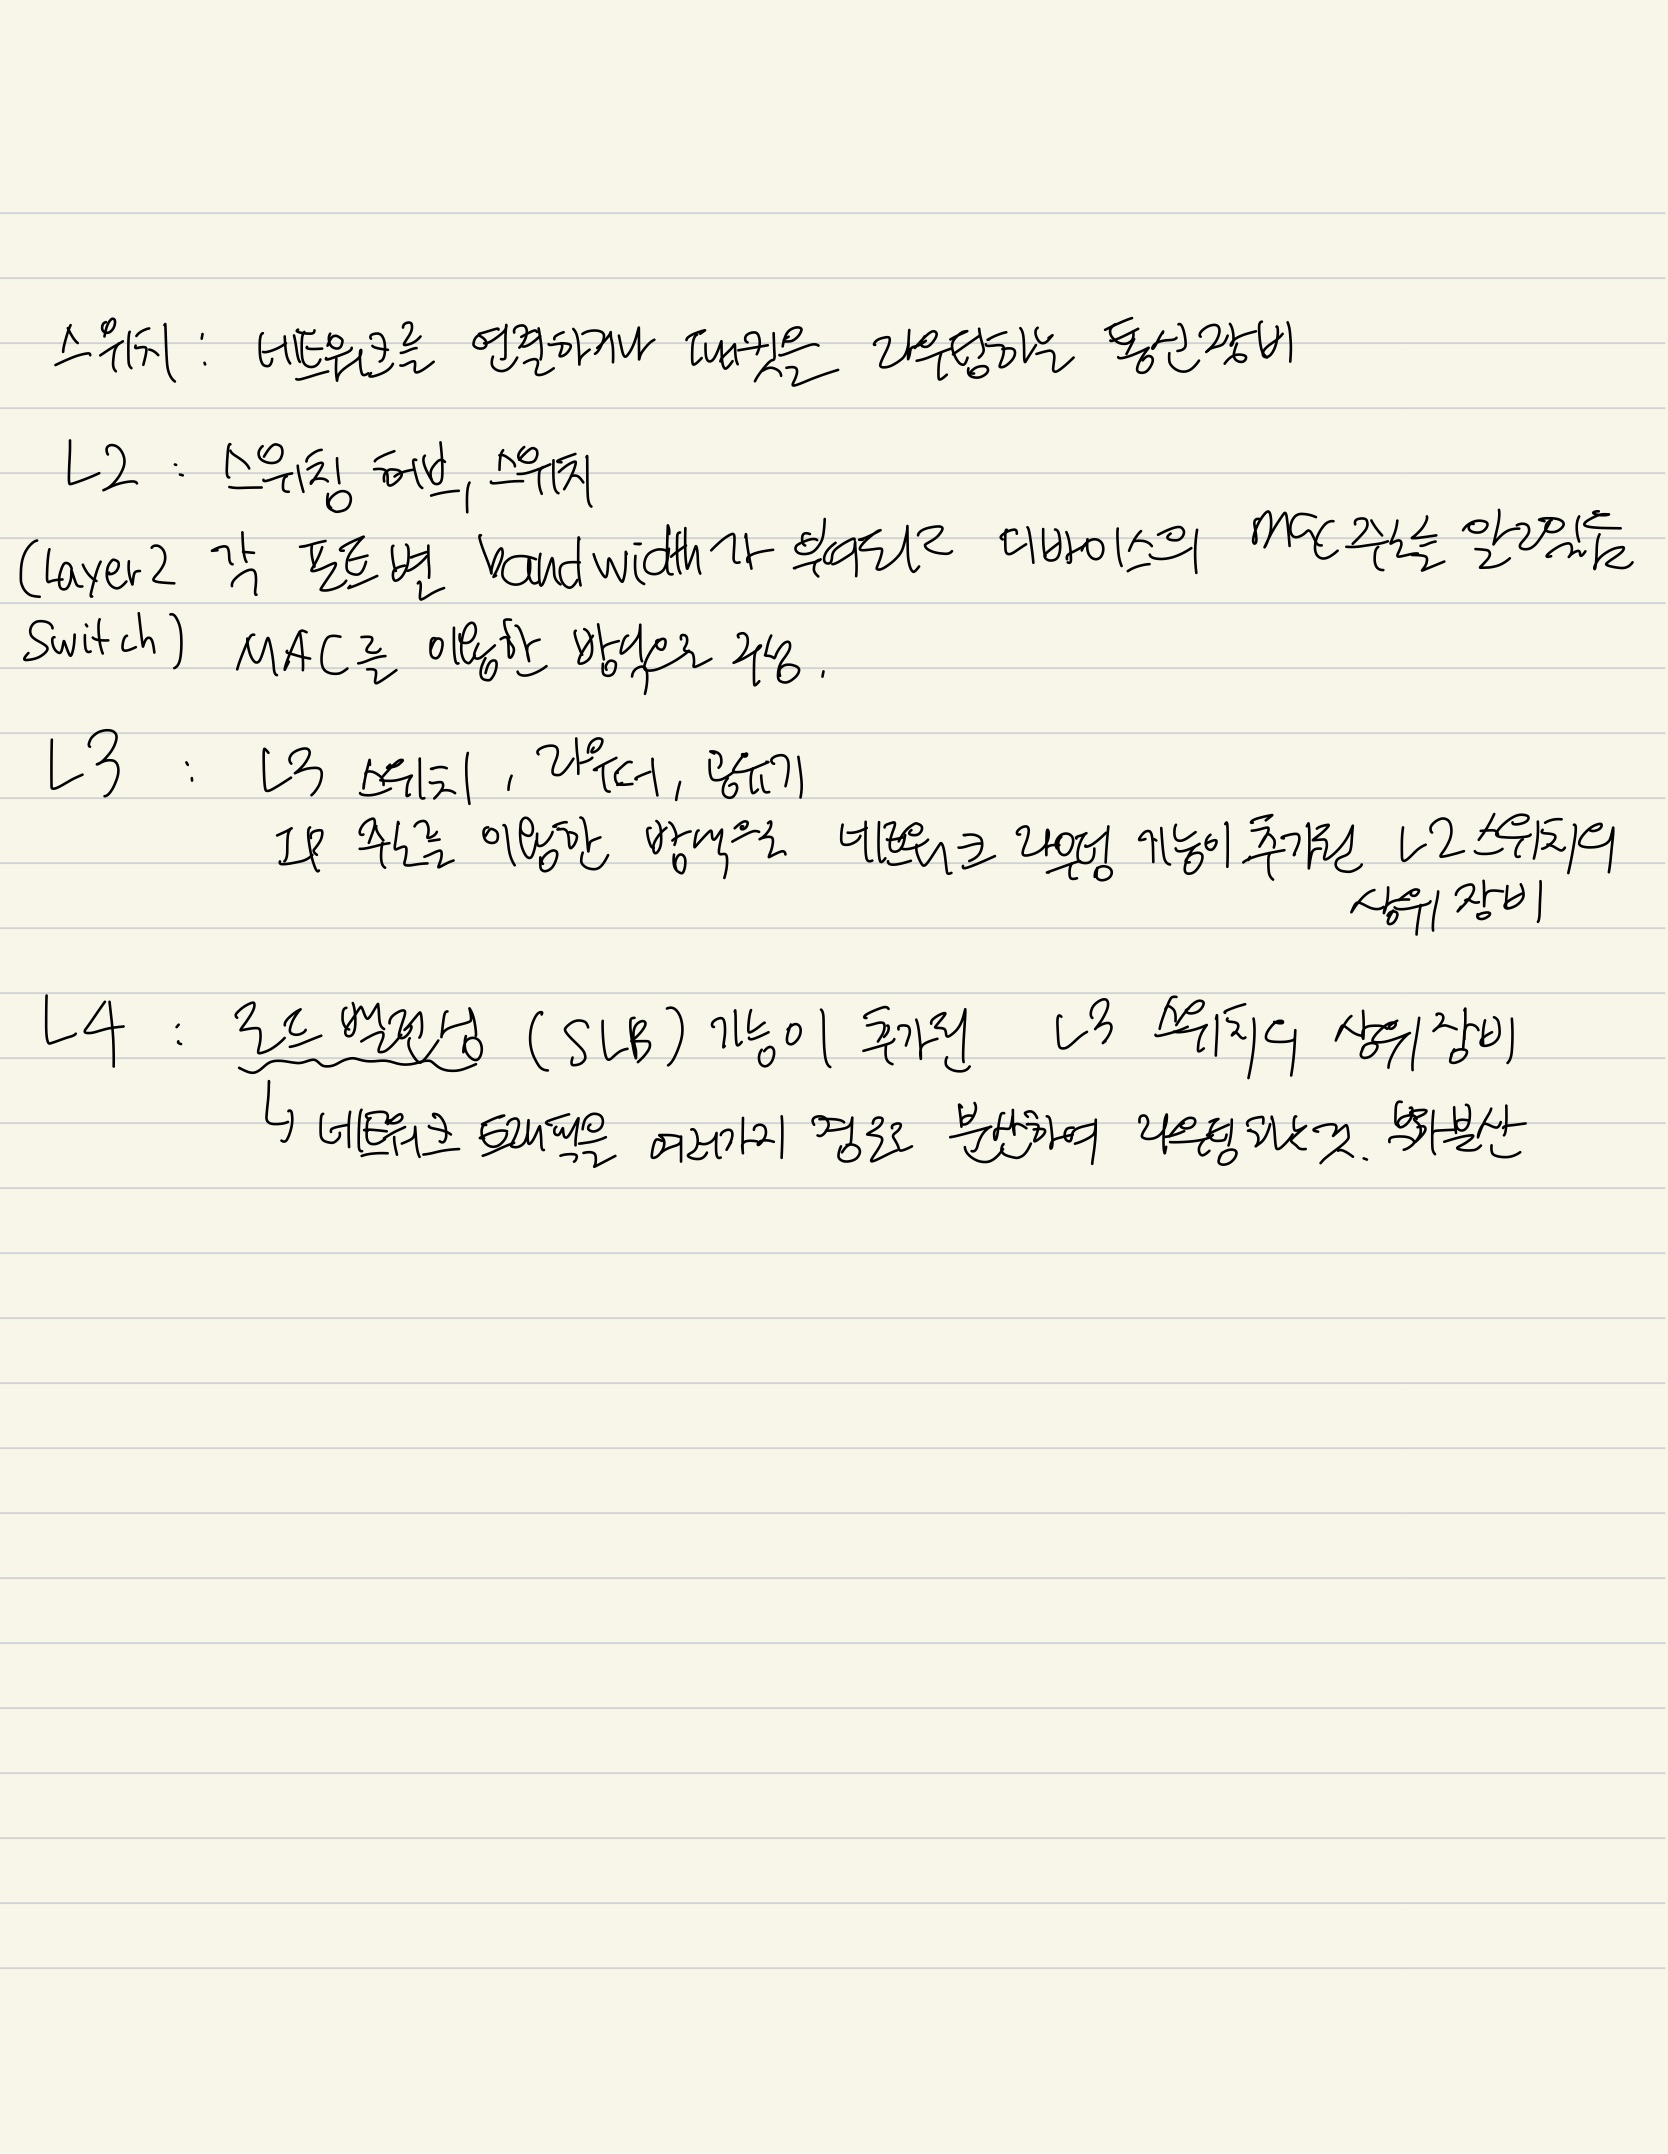 스위치 : 네트워크를 연결하거나 패킷을 라우팅하는 통신장비
L2 : 스위칭 허브, 스위치
(Layer2 각 포트별 bandwidth가 부여되고 디바이스의 MAC주소를 알고있음
Switch) MAC를 이용한 방식으로 구성.
L3 : L3 스위치, 라우터, 공유기
IP 주소를 이용한 방식으로 네트워크 라우팅 기능이 추가된 L2스위치의
상위 장비
L4 : 로드 밸런싱 (SLB) 기능이 추가된 L3 스위치의 상위장비
↳ 네트워크 트래픽을 여러가지 경로로 분산하여 라우팅되는것. 부하분산